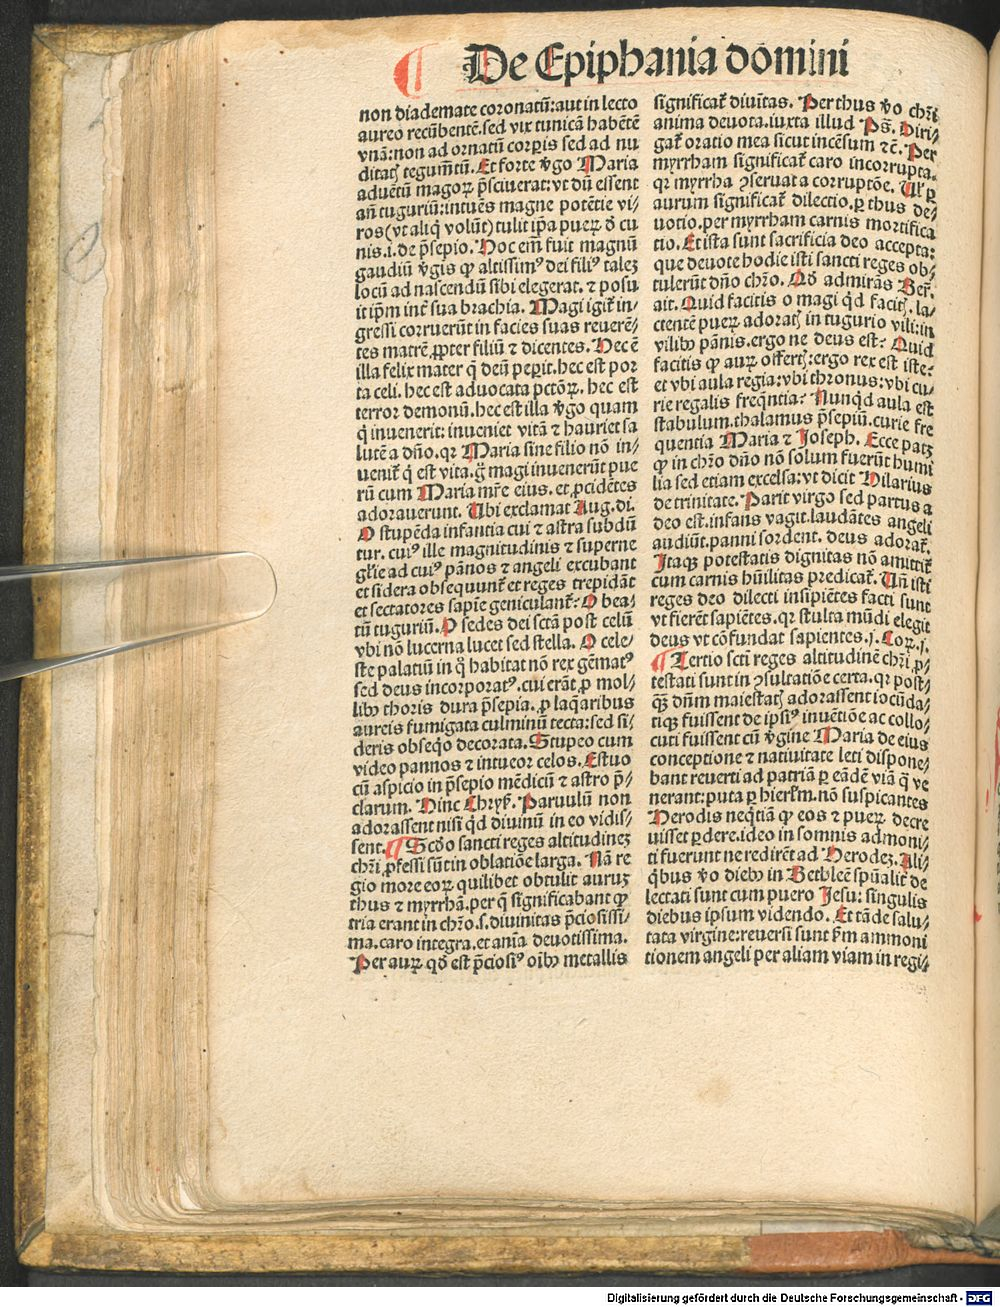 ¶ De Epiphania domini
non diademate coronatū: aut in lecto
aureo recūbentē. sed vix tunicā habētē
vnā: non ad ornatū corꝑis sed ad nu
ditatꝭ tegumētū. Et forte v̾go Maria
aduētū magoꝝ p̄sciuerat: vt dū essent
an̄ tuguriū: intuēs magne potētie vi-
ros (vt aliqͥ volūt) tulit ip̄a pueꝝ d̾ cu
nis .i. de p̄sepio. Hoc em̄ fuit magnū
gaudiū v̾gis ꝙ altissimꝰ dei filiꝰ taleꝫ
locū ad nascendū sibi elegerat. ⁊ posu
it ip̄m int̾ sua brachia. Magi igit̾ in-
gressi corruerūt in facies suas reuerē-
tes matrē ꝓpter filiū ⁊ dicentes. Hec ē
illa felix mater q̄ deū peꝑit. hec est por
ta celi. hec est aduocata pctōꝝ. hec est
terror demonū. hec est illa v̾go quam
qͥ inuenerit: inueniet vitā ⁊ hauriet sa
lutē a dn̄o. qꝛ Maria sine filio nō in-
uenit̾ qͥ est vita. g̊ magi inuenerūt pue
rū cum Maria mr̄e eius. et ꝓcidētes
adorauerunt. Ubi exclamat Aug. di.
O stupēda infantia cui ⁊ astra subdū
tur. cuiꝰ ille magnitudinis ⁊ superne
gl̄ie ad cuiꝰ pānos ⁊ angeli excubant
et sidera obsequunt̾ et reges trepidāt
et sectatores sapīe geniculant̾? O bea-
tū tuguriū. O sedes dei sctā post celū
vbi nō lucerna lucet sed stella. O cele-
ste palatiū in qͦ habitat nō rex gēmatꝰ
sed deus incorporatꝰ. cui erāt ꝓ mol-
libꝰ thoris dura p̄sepia. ꝓ laq̄aribus
aureis fumigata culminū tecta: sed si-
deris obseqͦo decorata. Stupeo cum
video pannos ⁊ intueor celos. Estuo
cū aspicio in p̄sepio mēdicū ⁊ astro p̄-
clarum. Hinc Chryſ. Paruulū non
adorassent nisi qͥd diuinū in eo vidis-
sent. ¶ Scd̾o sancti reges altitudineꝫ
chr̄i ꝓfessi sūt in oblatiōe larga. Nā re
gio more eoꝝ quilibet obtulit auruꝫ
thus ⁊ myrrhā. per q̄ significabant ꝙ
tria erant in chr̄o. s. diuinitas p̄ciosissi-
ma. caro integra. et anīa deuotissima.
Per auꝝ qd̾ est p̄ciosiꝰ oībꝰ metallis
significat̾ diuītas. Per thus v̾o chr̄i
anima deuota. iuxta illud Ps̄. Diri-
gat̾ oratio mea sicut incēsum ⁊c̄. Per
myrrham significat̾ caro incorrupta.
qꝛ myrrha ꝯseruat a corruptōe. Ul̾ ꝑ
aurum significat̾ dilectio. ꝑ thus de-
uotio. per myrrham carnis mortifica
tio. Et ista sunt sacrificia deo accepta:
que deuote hodie isti sancti reges ob-
tulerūt dn̄o chr̄o. Qd̾ admirās Ber̄.
ait. Quid facitis o magi qͥd facitꝭ. la-
ctentē pueꝝ adoratꝭ in tugurio vili: in
vilibꝰ pānis. ergo ne deus est? Quid
facitis ꝙ auꝝ offertꝭ: ergo rex est iste:
et vbi aula regia: vbi thronus: vbi cu-
rie regalis freq̄ntia? Nunqͥd aula est
stabulum. thalamus p̄sepiū. curie fre
quentia Maria ⁊ Joseph. Ecce patꝫ
ꝙ in chr̄o dn̄o nō solum fuerūt humi
lia sed etiam excelsa: vt dicit Hilarius
de trinitate. Parit virgo sed partus a
deo est. infans vagit. laudātes angeli
audiūt. panni sordent. deus adorat̾.
Itaqꝫ potestatis dignitas nō amittit̾
cum carnis hūilitas predicat̾. Un̄ isti
reges deo dilecti insipiētes facti sunt
vt fierēt sapiētes. qꝛ stulta mūdi elegit
deus vt cōfundat sapientes. j. Coꝝ. j.
¶ Tertio sctī reges altitudinē chr̄i ꝓ-
testati sunt in ꝯsultatiōe certa. qꝛ post-
qꝫ̄ dn̄m maiestatꝭ adorassent iocūda-
tiqꝫ fuissent de ipsiꝰ inuētiōe ac collo-
cuti fuissent cū v̾gine Maria de eius
conceptione ⁊ natiuitate leti dispone-
bant reuerti ad patriā ꝑ eādē viā qͣ ve
nerant: puta ꝑ hierl̄m. nō suspicantes
Herodis neq̄tiā ꝙ eos ⁊ pueꝝ decre
uisset ꝑdere. ideo in somnis admoni-
ti fuerunt ne redirēt ad Herodeꝫ. Ali-
qͥbus v̾o diebꝰ in Bethleē spūalit̾ de
lectati sunt cum puero Jesu: singulis
diebus ipsum videndo. Et tāde salu-
tata virgine: reuersi sunt ꝑm ammoni
tionem angeli per aliam viam in regi-
Digitalisierung gefördert durch die Deutsche Forschungsgemeinschaft - DFG